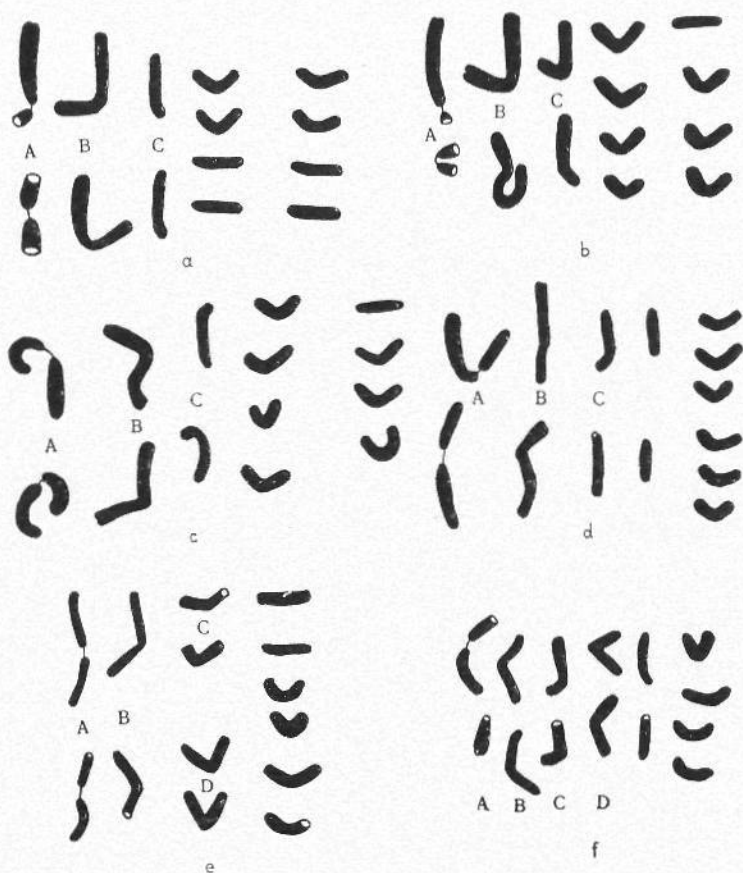 A B C
a
A B C
b
A B C
c
A B C
d
A B C
D
e
A B C D
f